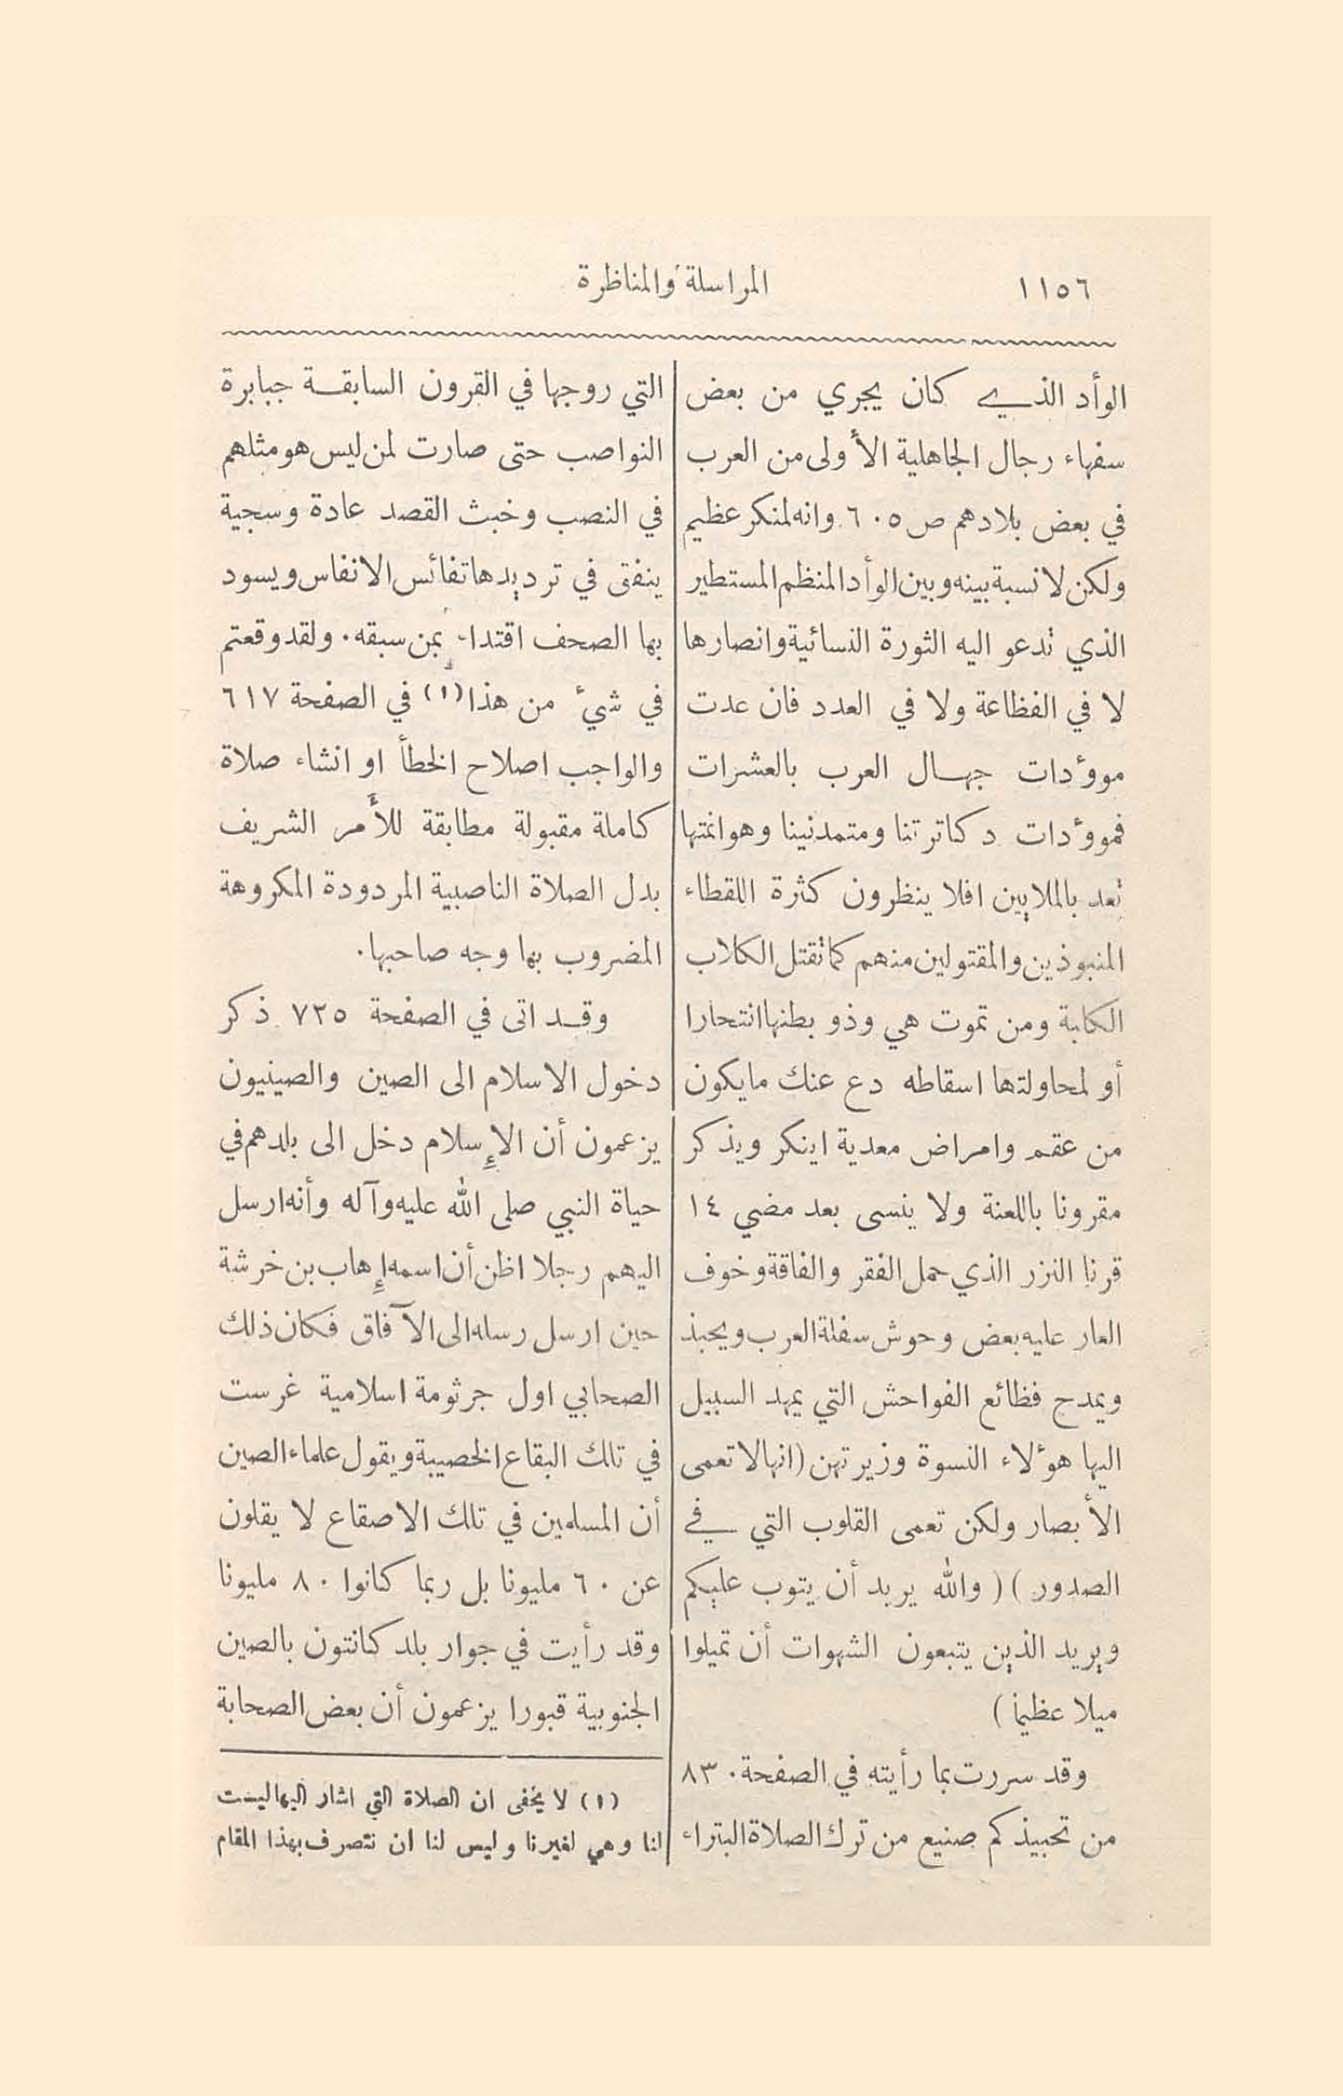 ١١٥٦
المراسلة والمناظرة
الوأد الذي كان يجري من بعض
سفهاء رجال الجاهلية الأولى من العرب
في بعض بلادهم ص ٦٠٥ وانه لمنكر عظيم
ولكن لا نسبة بينه وبين الوأد المنظم المستطير
الذي تدعو اليه الثورة النسائية وانصارها
لا في الفظاعة ولا في العدد فان عدت
موؤدات جهال العرب بالعشرات
فموؤدات دكاترتنا ومتمدنينا وهوانمتها
تعد بالملايين افلا ينظرون كثرة اللقطاء
المنبوذين والمقتولين منهم كما تقتل الكلاب
الكلبة ومن تموت هي وذو بطنها انتحارا
أو لمحاولتها اسقاطه دع عنك ما يكون
من عقم وامراض معدية اينكر ويذكر
مقرونا باللعنة ولا ينسى بعد مضي ١٤
قرنا النزر الذي حمل الفقر والفاقة وخوف
العار عليه بعض وحوش سفلة العرب ويحبذ
ويمدح فظائع الفواحش التي يمهد السبيل
اليها هؤلاء النسوة وزيرتهن (انها لا تعمى
الأبصار ولكن تعمى القلوب التي في
الصدور) (والله يريد أن يتوب عليكم
ويريد الذين يتبعون الشهوات أن تميلوا
ميلا عظيما)
وقد سررت بما رأيته في الصفحة ٨٣٠
من تحبيذكم صنيع من ترك الصلاة البتراء
التي روجها في القرون السابقة جبابرة
النواصب حتى صارت لمن ليس هو مثلهم
في النصب وخبث القصد عادة وسجية
ينفق في ترديدها نفائس الانفاس ويسود
بها الصحف اقتداء بمن سبقه. ولقد وقعتم
في شيء من هذا (١) في الصفحة ٦١٧
والواجب اصلاح الخطأ او انشاء صلاة
كاملة مقبولة مطابقة للأمر الشريف
بدل الصلاة الناصبية المردودة المكروهة
المضروب بها وجه صاحبها.
وقد اتى في الصفحة ٧٣٥ ذكر
دخول الاسلام الى الصين والصينيون
يزعمون أن الإسلام دخل الى بلدهم في
حياة النبي صلى الله عليه وآله وأنه ارسل
اليهم رجلا اظن أن اسمه إهاب بن خرشة
حين ارسل رسله الى الآفاق فكان ذلك
الصحابي اول جرثومة اسلامية غرست
في تلك البقاع الخصيبة ويقول علماء الصين
أن المسلمين في تلك الاصقاع لا يقلون
عن ٦٠ مليونا بل ربما كانوا ٨٠ مليونا
وقد رأيت في جوار بلد كانتون بالصين
الجنوبية قبورا يزعمون أن بعض الصحابة
(١) لا يخفى ان الصلاة التي اشار اليها ليست
لنا وهي لغيرنا وليس لنا ان نتصرف بهذا المقام